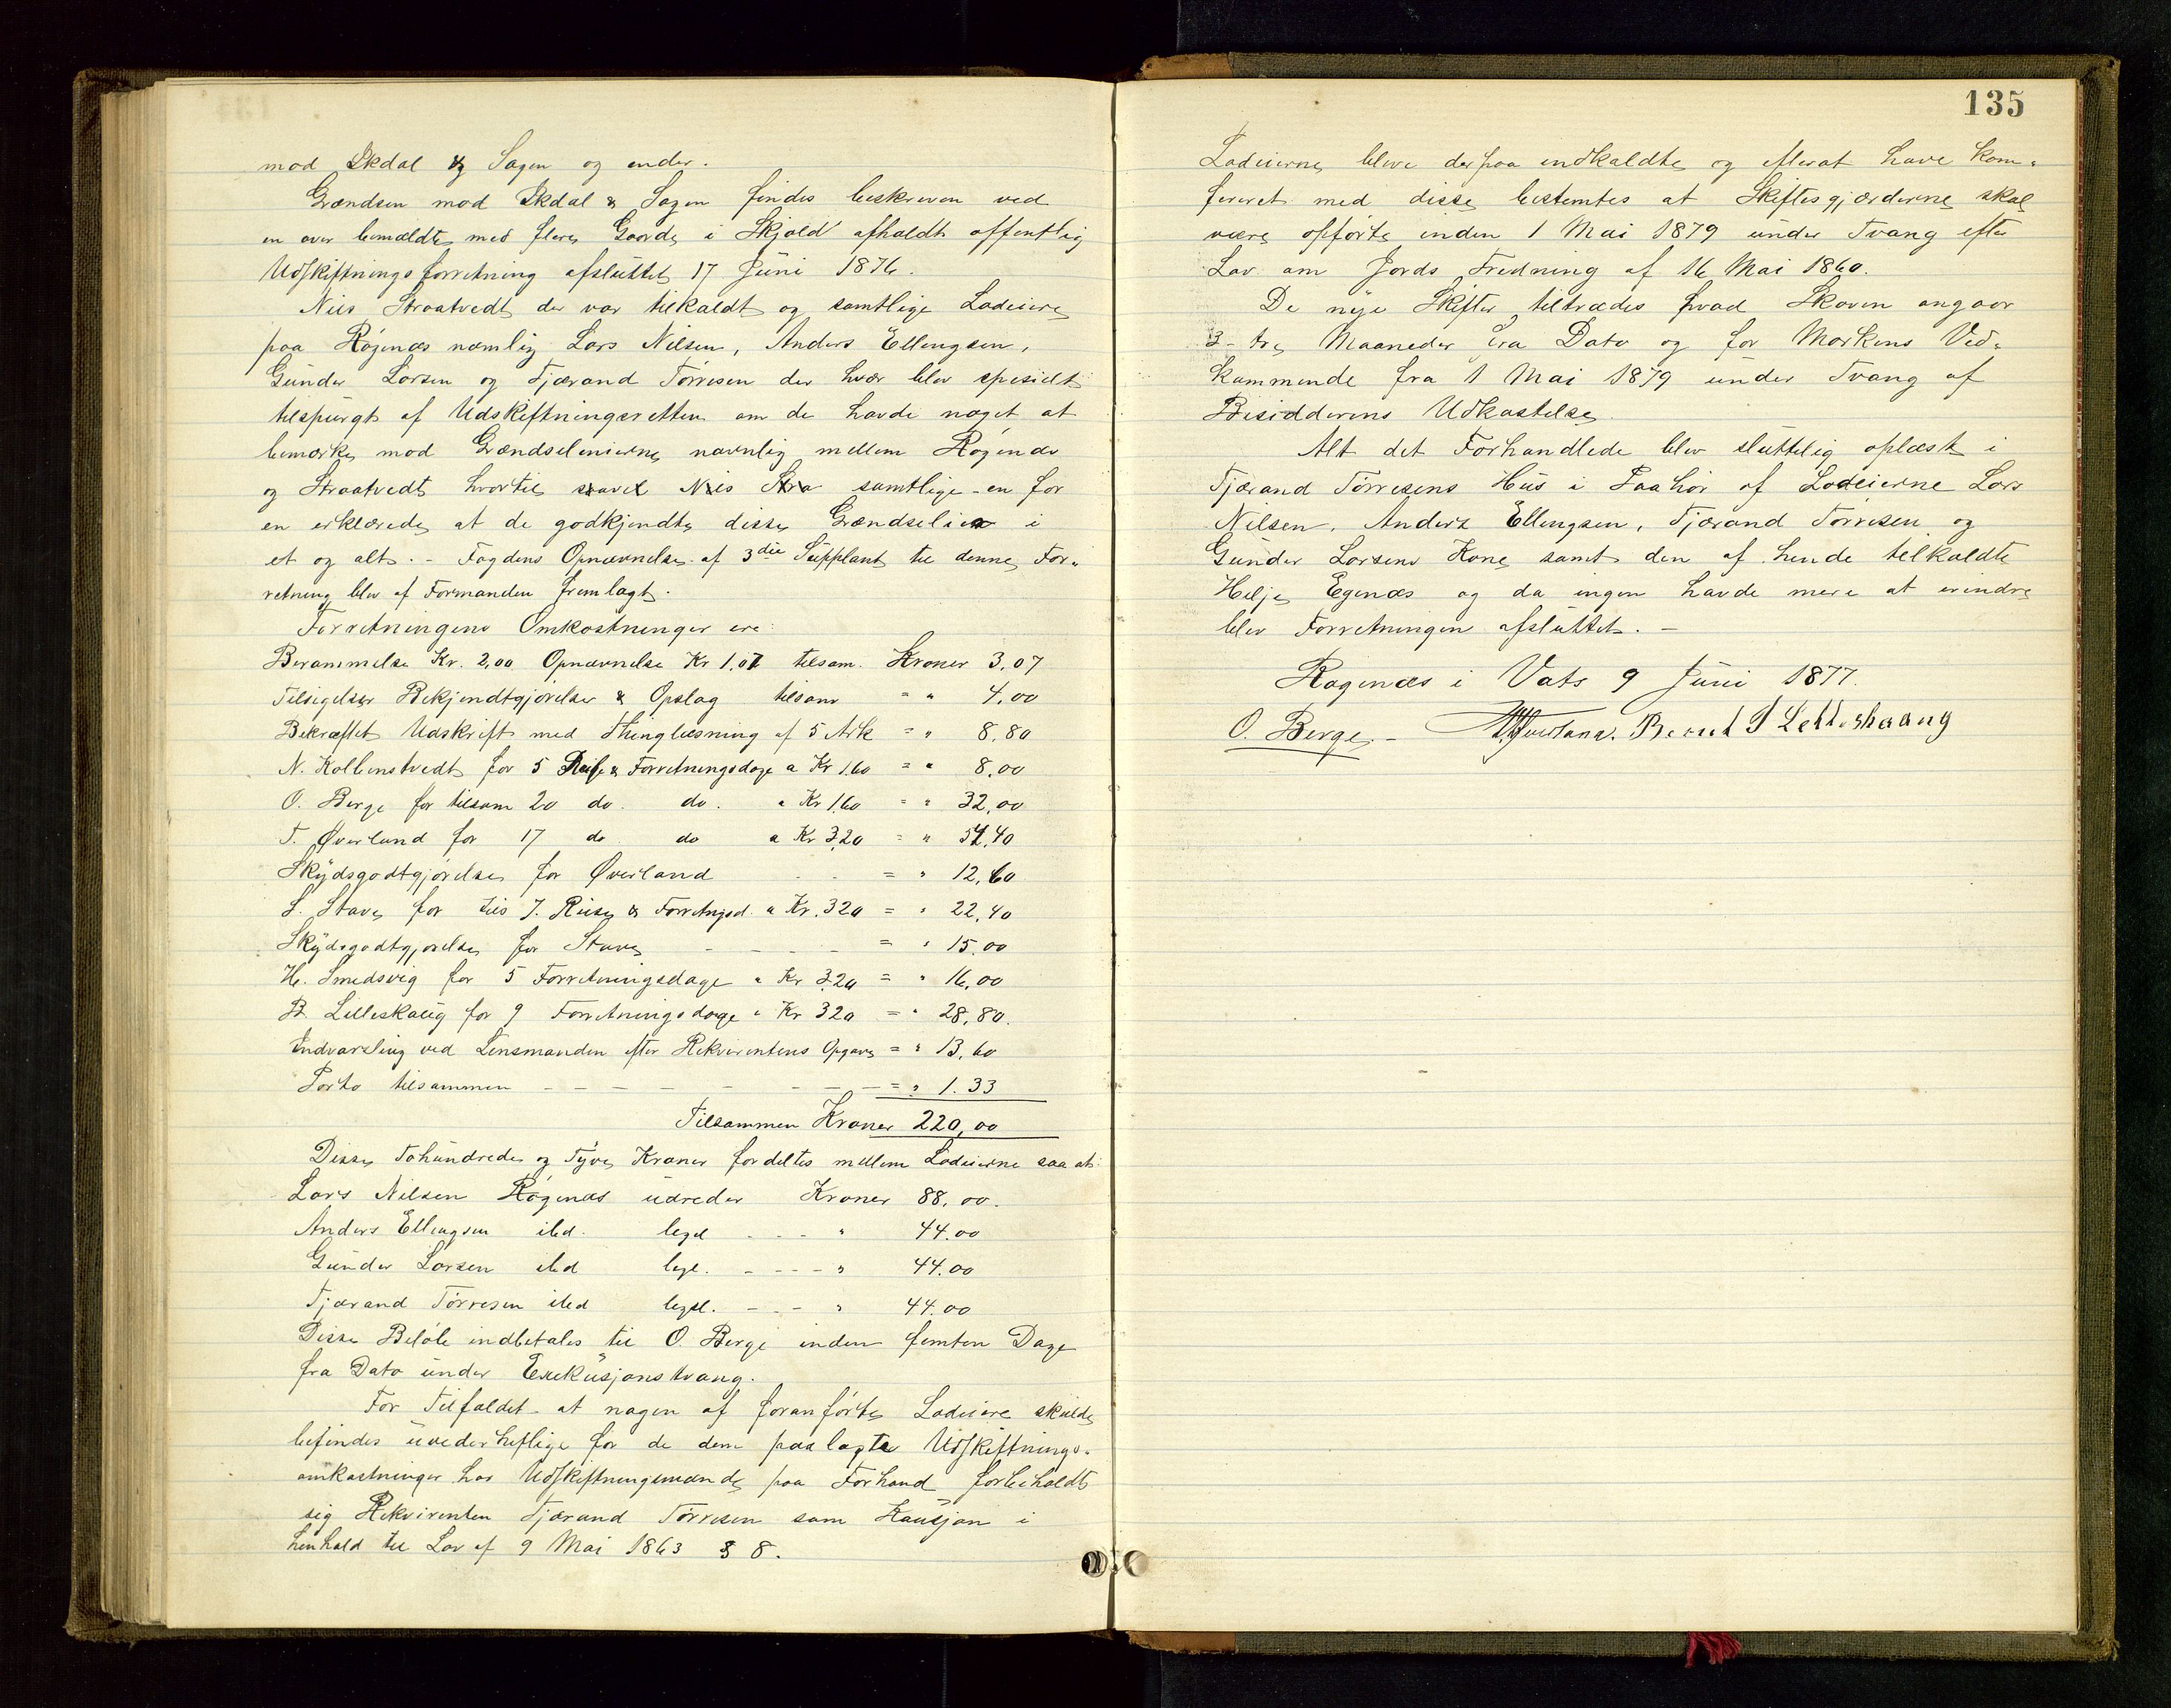 mod Ikdal og Sagen og ender.
Grændsen mod Ikdal & Sagen findes beskreven ved
en over bemældte med flere Gaarde i Skjold afholdt offentlig
Udskiftningsforretning afsluttet 17 Juni 1876.
Niis Straatvedt der var tilkaldt og samtlige Lodeiere
paa Røgenæs nemlig Lars Nilsen, Anders Ellingsen,
Gunder Larsen og Tjærand Tørresen der hver blev spesielt
tilspurgt af Udskiftningsretten om de havde noget at
bemærke mod Grændselinierne navnlig mellem Røgenæs
og Straatvedt hvortil samtlige en for
en erklærede at de godkjendte disse Grændselinier i
et og alt. - Fogdens Opnævnelse af 3die Supplant til denne For-
retning blev af Formanden fremlagt.
Forretningens Omkostninger ere:
Berammelse Kr. 2,00 Opnævnelse Kr 1.07 tilsam. Kroner 3,07
Tilsigelser Bekjendtgjørelser & Opslag tilsam = " 4,00
Bekræftet Udskrift med Thinglæsning af 5 Ark = " 8,80
N. Kolbenstvedt for 5 Reise & Forretningsdage a Kr 1.60 = " 8,00
O. Berge for tilsam 20 do. do. a Kr 1.60 = " 32,00
T. Øverland for 17 do. do a Kr 3.20 = " 54,40
Skydsgodtgjørelse for Øverland - - = " 12,60
S. Stave for tils 7. Reise & Forretngsd. a Kr. 3.20 = " 22,40
Skydsgodtgjørelse for Stave - - - - = " 15.00
H. Smedsvig for 5 Forretningsdage a Kr 3.20 = " 16,00
B. Lilleskoug for 9 Forretningsdage a Kr 3.20 = " 28,80.
Indvarsling ved Lensmanden efter Rekvirentens Opgave = " 13,60
Porto tilsammen - - - - - - - = " 1.33
Tilsammen Kroner 220,00
Disse Tohundrede og Tyve Kroner fordeltes mellem Lodeierne saa at:
Lars Nilsen Røgenæs udreder Kroner 88.00.
Anders Ellingsen ibd. ligel - - - " 44.00
Gunder Larsen ibd ligel. - - - - " 44.00
Tjærand Tørresen ibd ligel. - - - " 44.00
Disse Beløb indbetales til O. Berge inden femten Dage
fra Dato under Exekusjonstvang.
For Tilfældet at nogen af foranførte Lodeiere skulde
befindes uvederheftige for de dem paalagte Udskiftnings-
omkostninger har Udskiftningsmænde paa Forhand forbeholdt
sig Rekvirenten Tjærand Tørresen som Kausjon i
Henhold til Lov af 9 Mai 1863 § 8.
135
Lodeierne bleve derpaa indkaldte og efterat have kon-
fereret med disse bestemtes at Skiftesgjærderne skal
være opførte inden 1 Mai 1879 under Tvang efter
Lov om Jords Fredning af 16 Mai 1860.
De nye Skifter tiltrædes hvad Skoven angaar
3- tre Maaneder fra Dato og for Markens Ved-
kommende fra 1 Mai 1879 under Tvang af
Besidderens Udkastelse.
Alt det Forhandlede blev sluttelig oplæst i
Tjærand Tørresens Hus i Paahør af Lodeierne Lars
Nilsen, Anders Ellingsen, Tjærand Tørresen og
Gunder Larsens Kone samt den af hende tilkaldte
Helje Egenæs og da ingen havde mere at erindre
blev Forretningen afsluttet. -
Røgenæs i Vats 9 Juni 1877.
O. Berge. - T. Øverland. Berent S Lilleskaaug